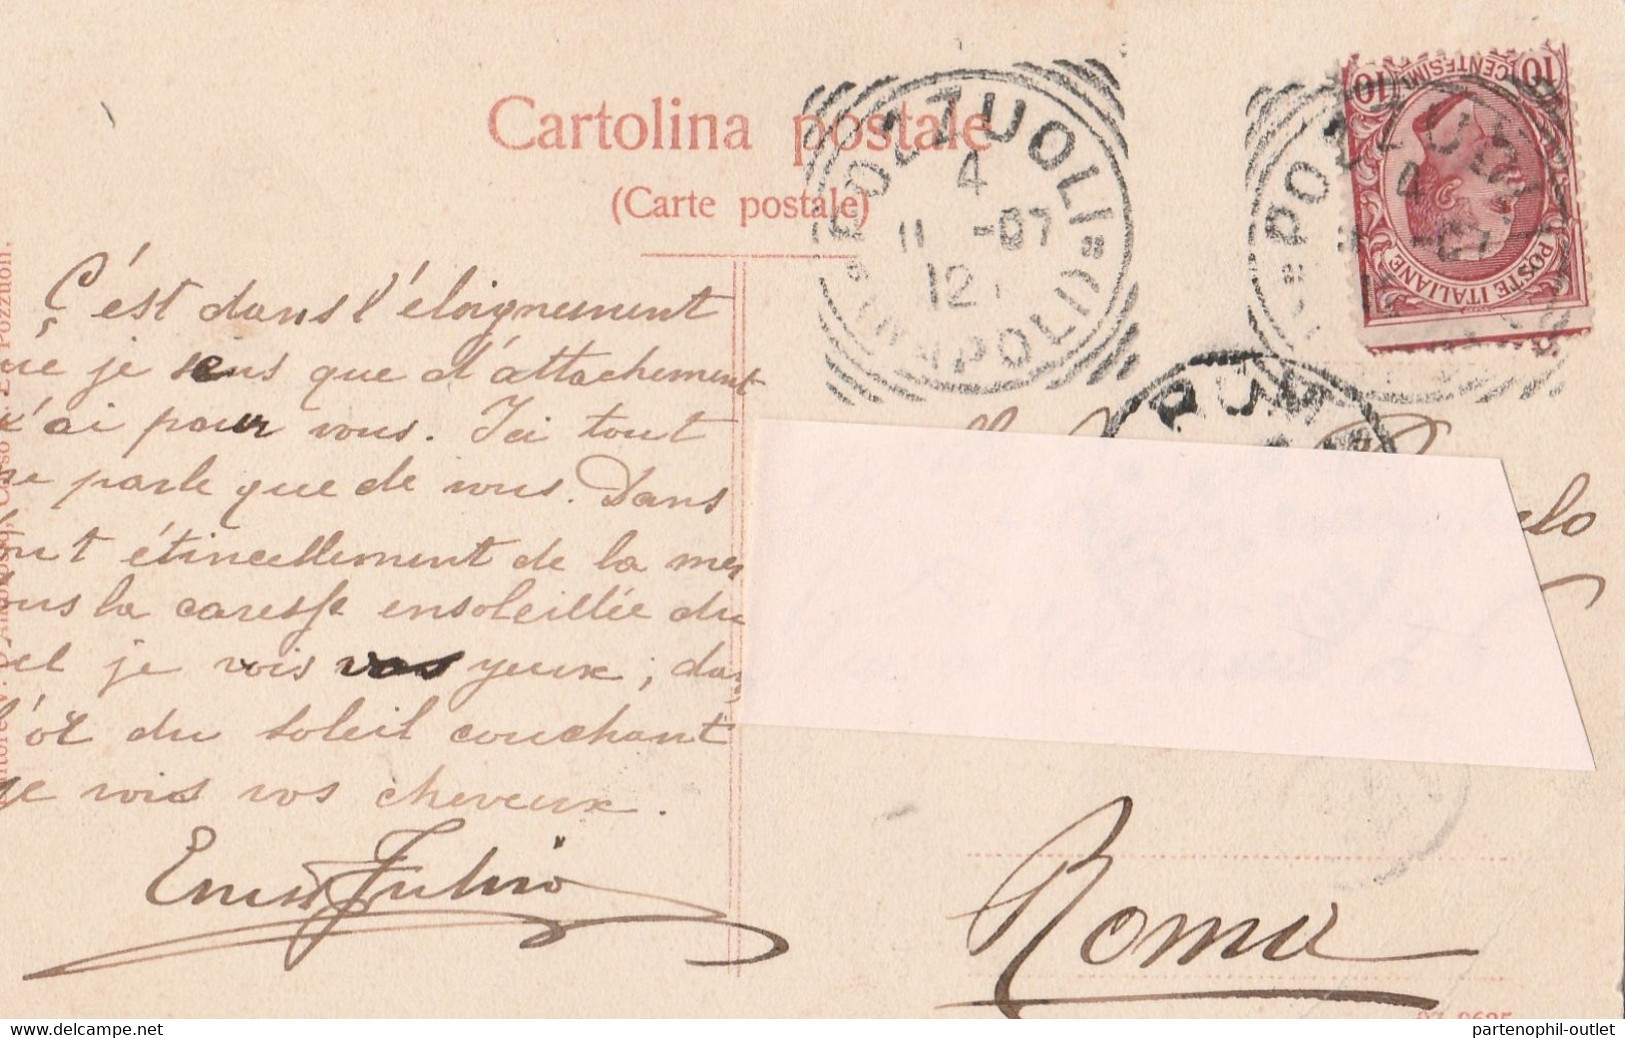 Cartolina postale
(Carte postale)
POZZUOLI
4
11 -07
12
(NAPOLI)
10 CENTESIMI 10
POSTE ITALIANE
POZZUOLI
4
-07
ROM
C'est dans l'éloignement
que je sens que d'attachement
j'ai pour vous. Ici tout
me parle que de vous. Dans
tout étincellement de la mer
sous la caresse ensoleillée du
ciel je vois vos yeux; dans
l'or du soleil couchant
je vois vos cheveux.
elo
Roma
07 9625
partenophil-outlet